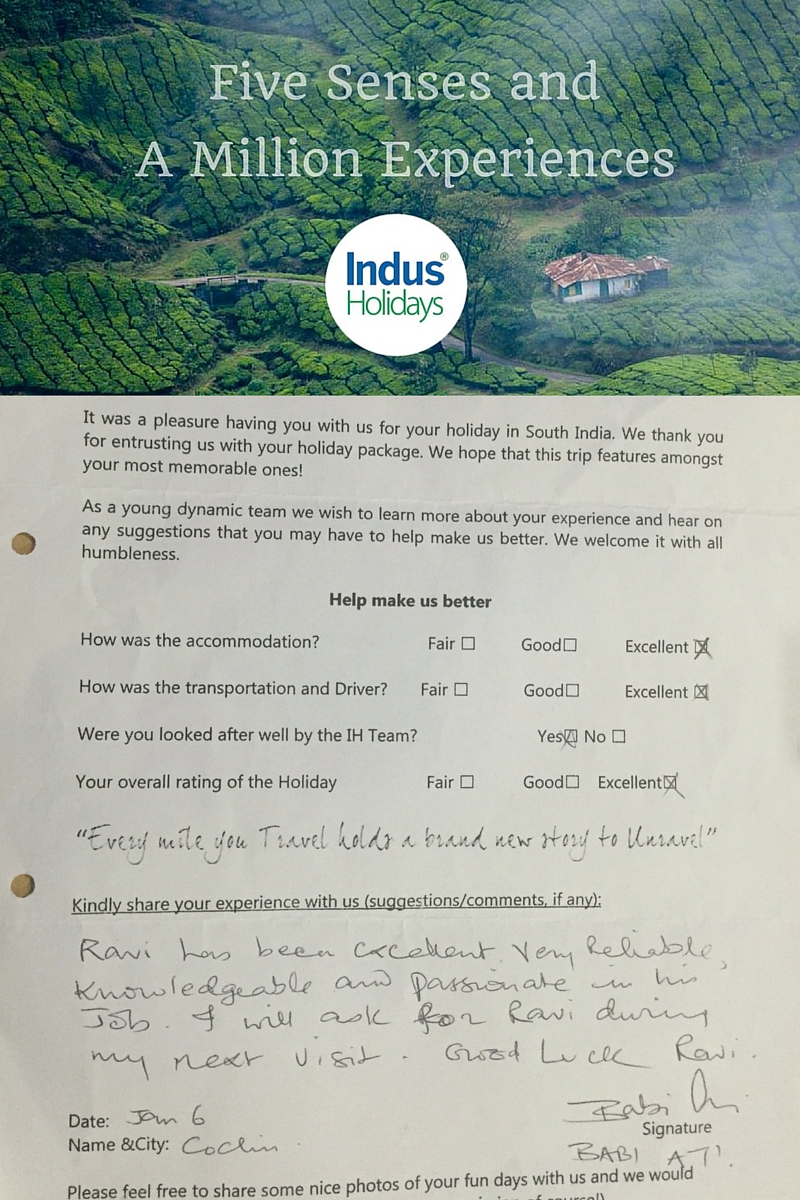 Five Senses and
A Million Experiences
Indus®
Holidays
It was a pleasure having you with us for your holiday in South India. We thank you
for entrusting us with your holiday package. We hope that this trip features amongst
your most memorable ones!
As a young dynamic team we wish to learn more about your experience and hear on
any suggestions that you may have to help make us better. We welcome it with all
humbleness.
Help make us better
How was the accommodation? Fair ☐ Good☐ Excellent ☒
How was the transportation and Driver? Fair ☐ Good☐ Excellent ☒
Were you looked after well by the IH Team? Yes☒ No ☐
Your overall rating of the Holiday Fair ☐ Good☐ Excellent☒
"Every mile you Travel holds a brand new story to Unravel"
Kindly share your experience with us (suggestions/comments, if any):
Ravi has been excellent. Very Reliable,
Knowledgeable and passionate in his
Job. I will ask for Ravi during
my next visit. Good Luck Ravi.
Date: Jan 6
Name &City: Cochin
Babi
Signature
BABI
Please feel free to share some nice photos of your fun days with us and we would